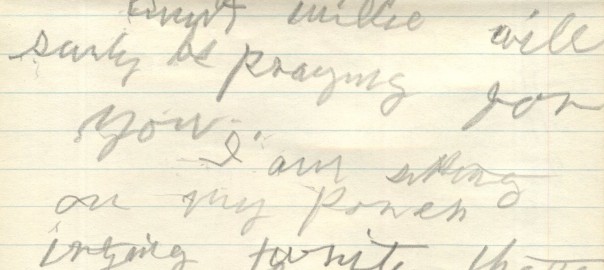 Aunt Millie will
surly be praying for
you.
I am siting
on my porch
trying to write the